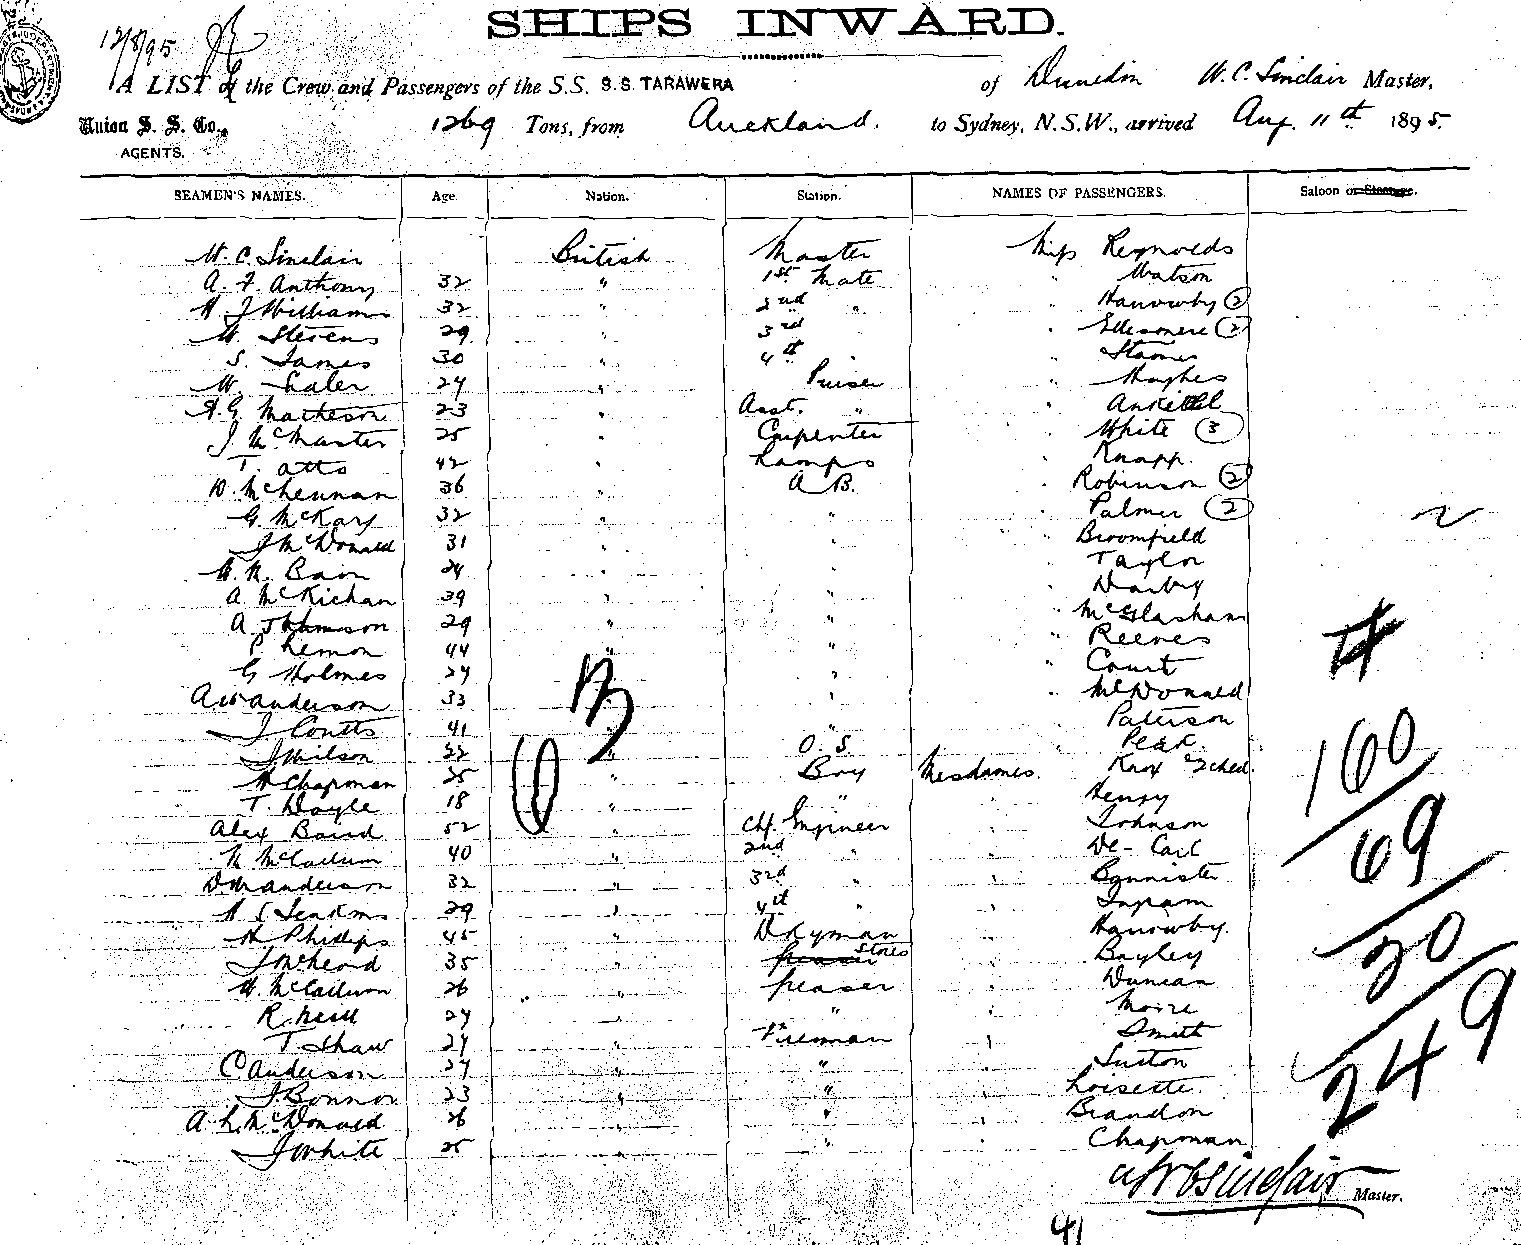 SHIPS INWARD.
12/8/95
A LIST of the Crew and Passengers of the S.S. S.S. TARAWERA of Dunedin W. C. Sinclair Master,
Union S. S. Co., 1269 Tons, from Auckland. to Sydney, N.S.W., arrived Aug. 11th 1895.
AGENTS.
SEAMEN'S NAMES. Age. Nation. Station. NAMES OF PASSENGERS. Saloon or Steerage.
W. C. Sinclair British Master Miss Reynolds
A. F. Anthony 32 " 1st Mate " Watson
H J Williams 32 " 2nd " " Harrowby (2)
W. Stevens 29 " 3rd " Ellesmere (2)
S. James 30 " 4th "
W. 24 " Purser " Hughes
A. G. Matheson 23 " Asst. " "
J McMaster 25 " Carpenter " White (3)
T. Otto 42 " Lamps " Knapp.
D. McLennan 36 " A B. " Robinson (2)
G. McKay 32 " " " Palmer (2)
J McDonald 31 " " " Broomfield
W. N. Bain 24 " " " Taylor
A. McKichan 39 " " " Darby
A Johnson 29 " " " McGlashan
P Lemon 44 " " " Reeves
G Holmes 27 " " " Court
A W Anderson 33 " " McDonald
J Coutts 41 " " Paterson
J Wilson 22 " O. S. " Peak
H Chapman 25 " Boy Mesdames. Knox & Child.
T. Doyle 18 " " " Henry
Alex Baird 52 " Chf. Engineer " Johnson
N McCallum 40 " 2nd " " De-
D M Anderson 32 " 3rd " " Bannister
H S Jenkins 29 " 4th " " Ingram
H Phillips 45 " Dkyman " Harrowby.
J McLeod 35 " Greaser Stores " Bayley
H. McCallum 26 " Greaser " Duncan
R. Neill 24 " " "
T Shaw 27 " Fireman " Smith
C Anderson 27 " " "
J Bonnor 23 " " "
A. L. McDonald 26 " " " Brandon
J White 25 " " " Chapman
160
69
20
249
W C Sinclair Master.
41